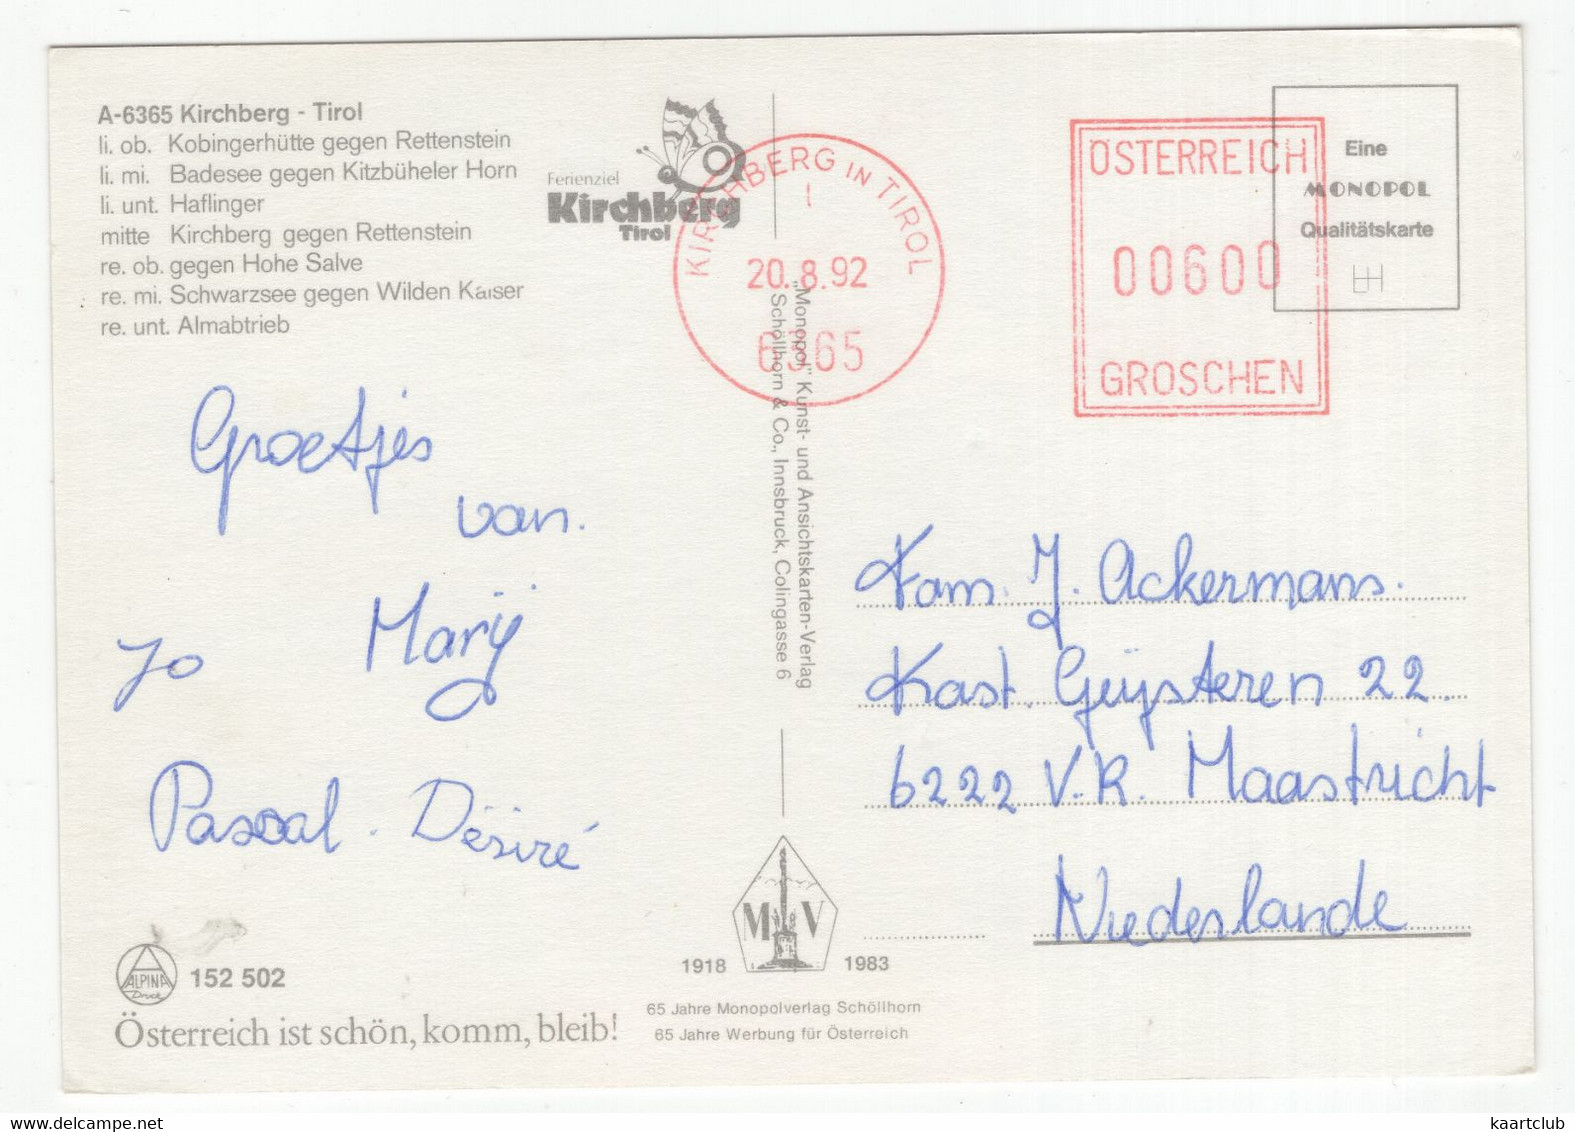 A-6365 Kirchberg - Tirol
li. ob. Kobingerhütte gegen Rettenstein
li. mi. Badesee gegen Kitzbüheler Horn
li. unt. Haflinger
mitte Kirchberg gegen Rettenstein
re. ob. gegen Hohe Salve
re. mi. Schwarzsee gegen Wilden Kaiser
re. unt. Almabtrieb
Ferienziel
Kirchberg
Tirol
KIRCHBERG IN TIROL
1
20.8.92
6365
ÖSTERREICH
00600
GROSCHEN
Eine
MONOPOL
Qualitätskarte
Groetjes
van.
Jo Marij
Pascal. Désiré
„Monopol" Kunst- und Ansichtskarten-Verlag
Schöllhorn & Co., Innsbruck, Colingasse 6
Fam. J. Ackermans.
Kast. Geijsteren 22.
6222 V.R. Maastricht
Niederlande
M V
1918 1983
65 Jahre Monopolverlag Schöllhorn
65 Jahre Werbung für Österreich
ALPINA
Druck
152 502
Österreich ist schön, komm, bleib!
kaartclub